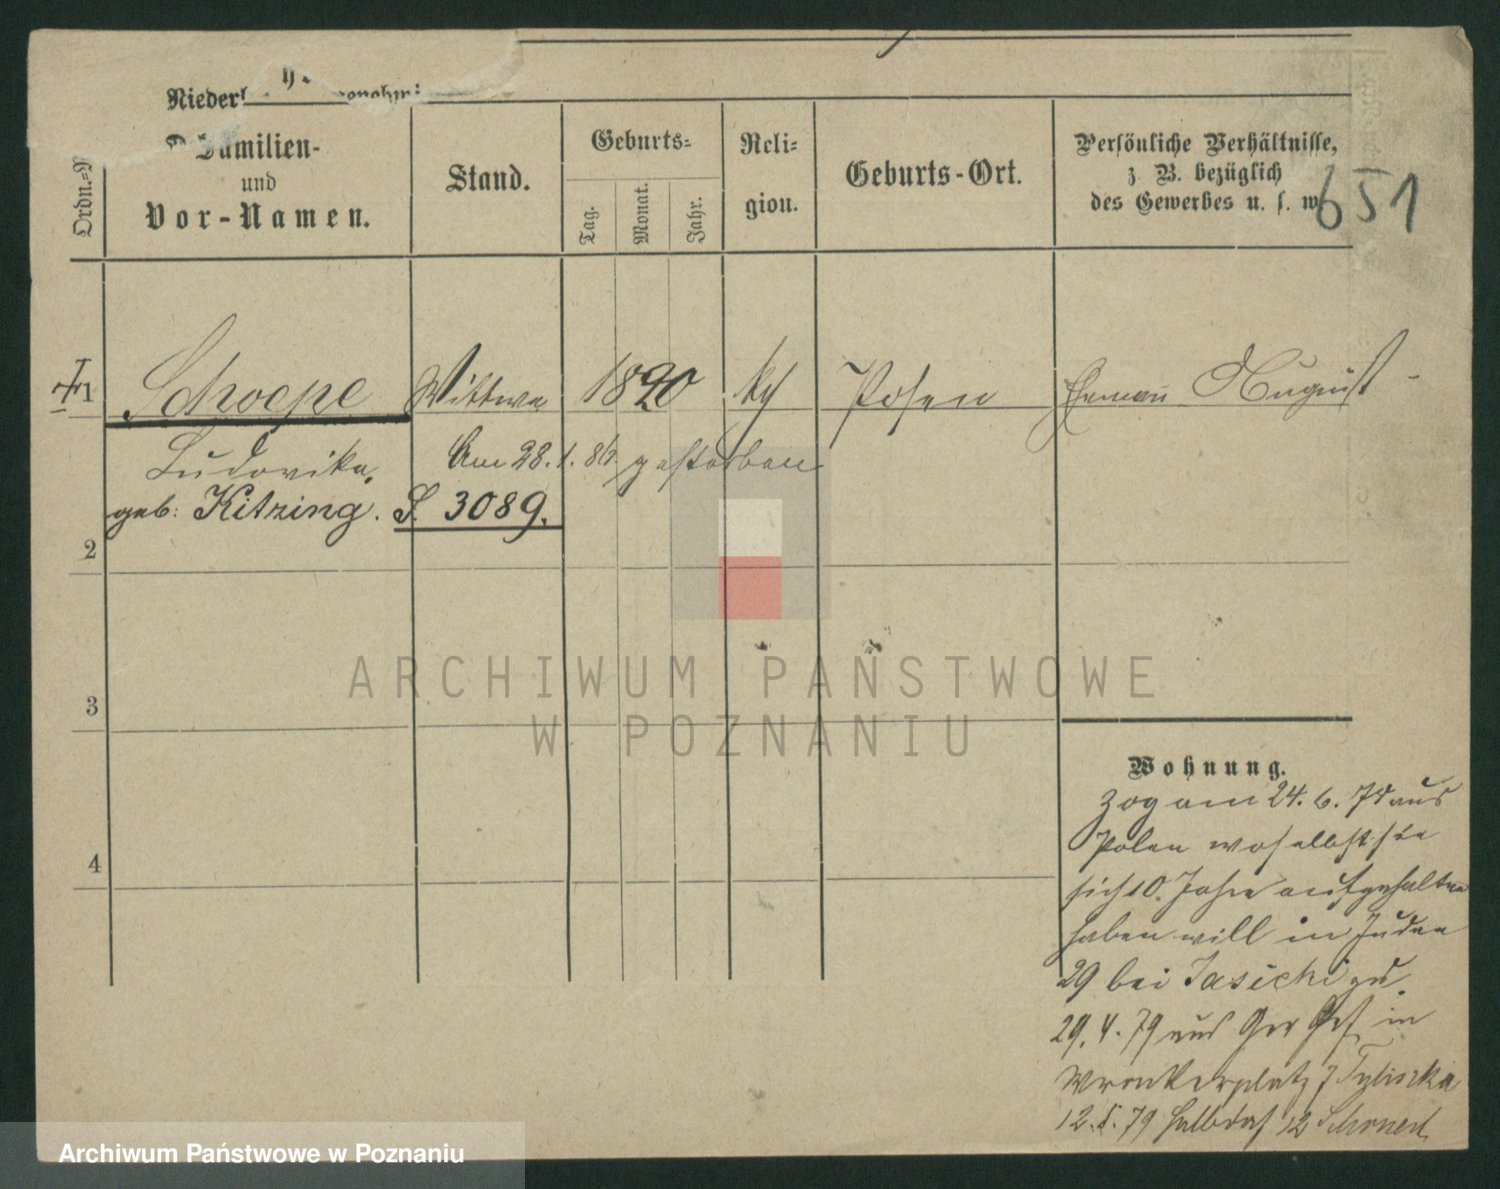 Familien-
und
Vor-Namen.
Stand.
Geburts-
Tag.
Monat.
Jahr.
Reli-
gion.
Geburts-Ort.
Persönliche Verhältnisse,
z. B. bezüglich
des Gewerbes u. s. w.
651
1
Schoepe Wittwe 1820 kth Posen August
Ludovika, Am 28.1.86 gestorben
geb: Kitzing. S. 3089.
2
3
4
Wohnung.
zog am 24. 6. 74 aus
Polen woselbst sie
sich 10 Jahre aufgehalten
haben will in Juden
29 bei Jasicki zu.
29.4.79 aus Ger Gef in
Wronkerplatz 7 Tyliszka
12.5.79 Halbdorf 12
ARCHIWUM PAŃSTWOWE
W POZNANIU
Archiwum Państwowe w Poznaniu